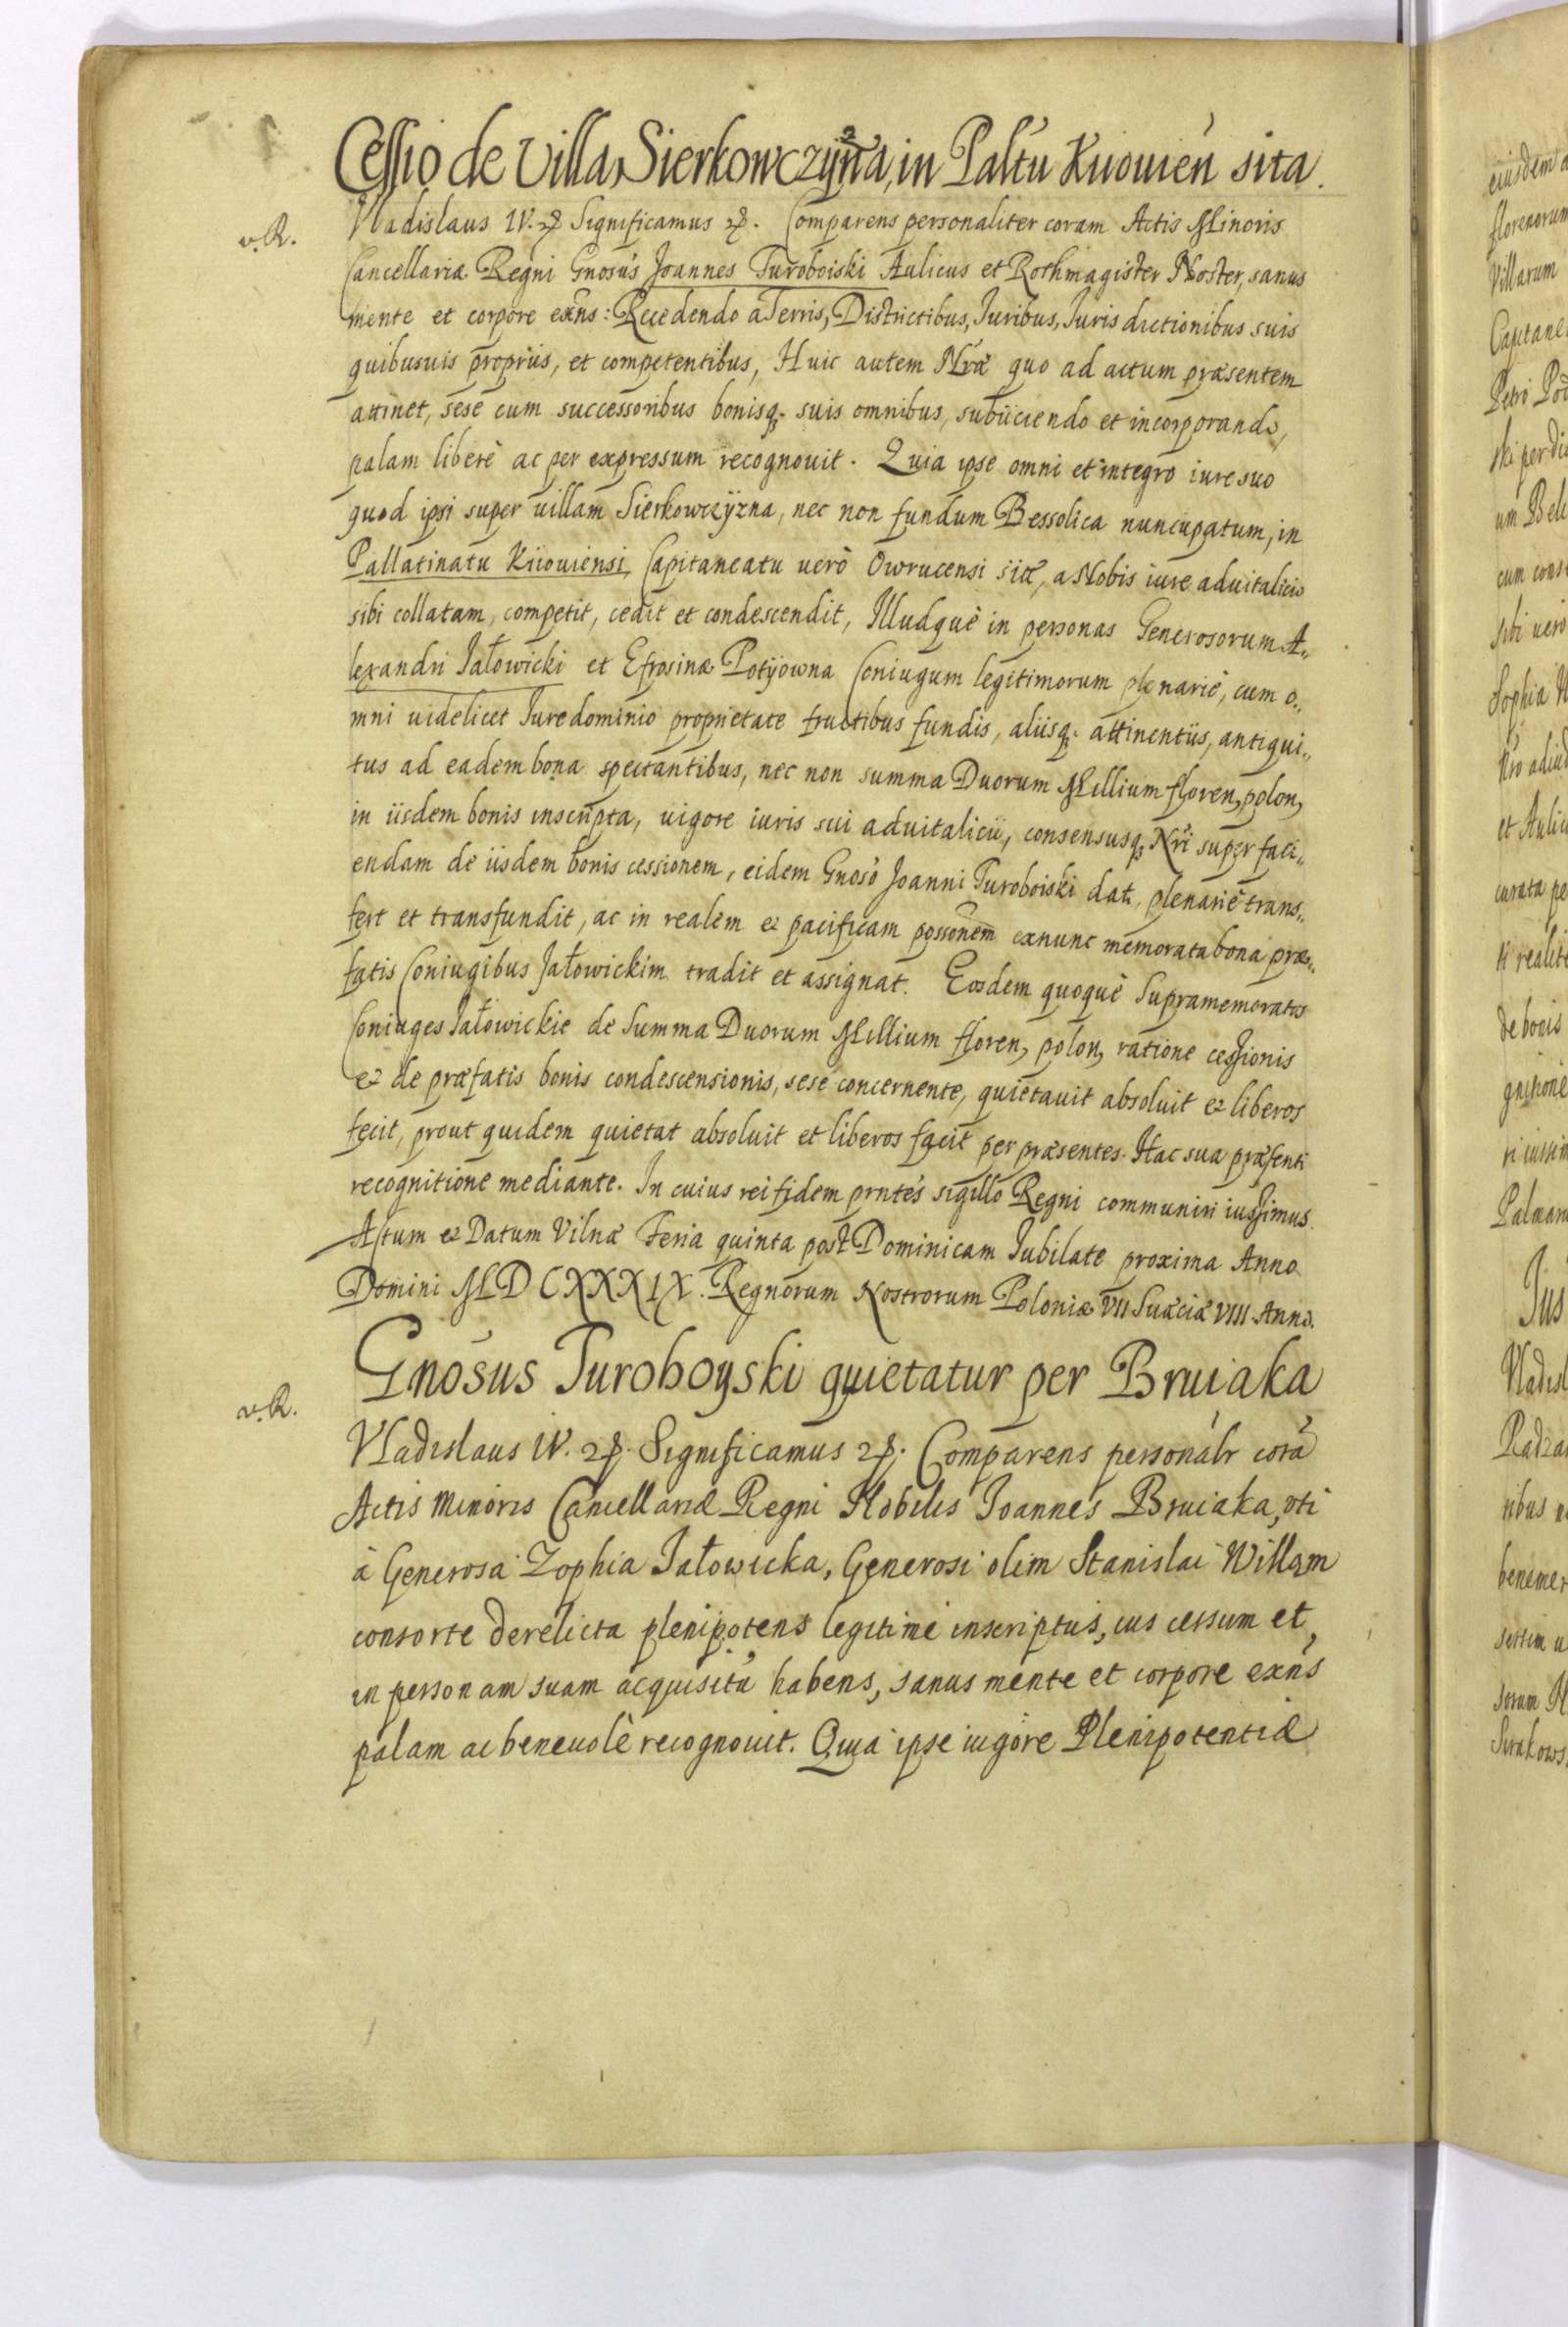 Cessio de Villa Sierkowczyzna, in Paltu Kiiouien sita.
v.R.
Vladislaus IV. etc Significamus etc. Comparens personaliter coram Actis Minoris
Cancellariæ Regni Gnosus Joannes Turoboiski Aulicus et Rothmagister Noster, sanus
mente et corpore exns: Recedendo a Terris, Districtibus, Juribus, Juris dictionibus suis
quibusuis proprijs, et competentibus, Huic autem Nræ quo ad actum præsentem
attinet, sese cum successoribus bonisq. suis omnibus, subijciendo et incorporando,
palam liberè ac per expressum recognouit. Quia ipse omni et integro iure suo
quod ipsi super uillam Sierkowczÿzna, nec non fundum Bessolica nuncupatum, in
Pallatinatu Kiiouiensi, Capitaneatu uerò Owrucensi sitæ, a Nobis iure aduitalicio
sibi collatam, competit, cedit et condescendit, Illudquè in personas Generosorum A„
lexandri Jałowicki et Efrosinæ Potÿowna Coniugum legitimorum plenariè, cum o„
mni uidelicet Jure dominio proprietate fructibus fundis, alijsq. attinentijs, antiqui„
tus ad eadem bona spectantibus, nec non summa Duorum Millium floren, polon,
in ijsdem bonis inscripta, uigore iuris sui aduitalicij, consensusq, Nri super faci„
endam de ijsdem bonis cessionem, eidem Gnoso Joanni Turoboiski dat, plenariè trans„
fert et transfundit, ac in realem et pacificam possonem exnunc memorata bona præ„
fatis Coniugibus Jałowickim tradit et assignat. Eosdem quoquè Supramemoratos
Coniuges Jałowickie de Summa Duorum Millium floren, polon, ratione cessionis
et de præfatis bonis condescensionis, sese concernente, quietauit absoluit et liberos
fecit, prout quidem quietat absoluit et liberos facit per præsentes. Hac sua præsenti
recognitione mediante. In cuius rei fidem prntes sigillo Regni communiri iussimus.
Actum et Datum Vilnæ Feria quinta post Dominicam Jubilate proxima Anno
Domini MDCXXXIX. Regnorum Nostrorum Poloniæ VII Suæciæ VIII. Anno.
Gnosus Turoboyski quietatur per Bruiaka
v.R.
Vladislaus IV. etc. Significamus etc. Comparens personalr corã
Actis Minoris Cancellariæ Regni Nobilis Joannes Bruiaka, vti
à Generosa Zophia Jałowicka, Generosi olim Stanislai Willam
consorte derelicta plenipotens legitime inscriptus, ius cessum et
in personam suam acquisitũ habens, sanus mente et corpore exns
palam ac beneuolè recognouit. Quia ipse uigore Plenipotentiæ
eiusdem
florenorum
Villarum
Petri
um
cum
sibi uero
Sophia
et
curata
ti
de
Jus
benemer